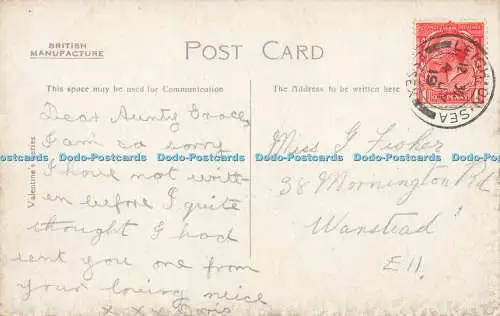 BRITISH
MANUFACTURE
POST CARD
This space may be used for Communication
The Address to be written here
Valentine's Series
LEIGH-ON-SEA
ESSEX
Dear Aunty Grace,
I am so sorry
I have not writt-
en before I quite
thought I had
sent you one from
your loving neice
x x x Doris
Miss G Fisher
38 Mornington Rd
Wanstead
E 11.
Dodo-Postcards Dodo-Postcards Dodo-Postcards Dodo-Postcards Dodo-Postcards Dodo-Postcards